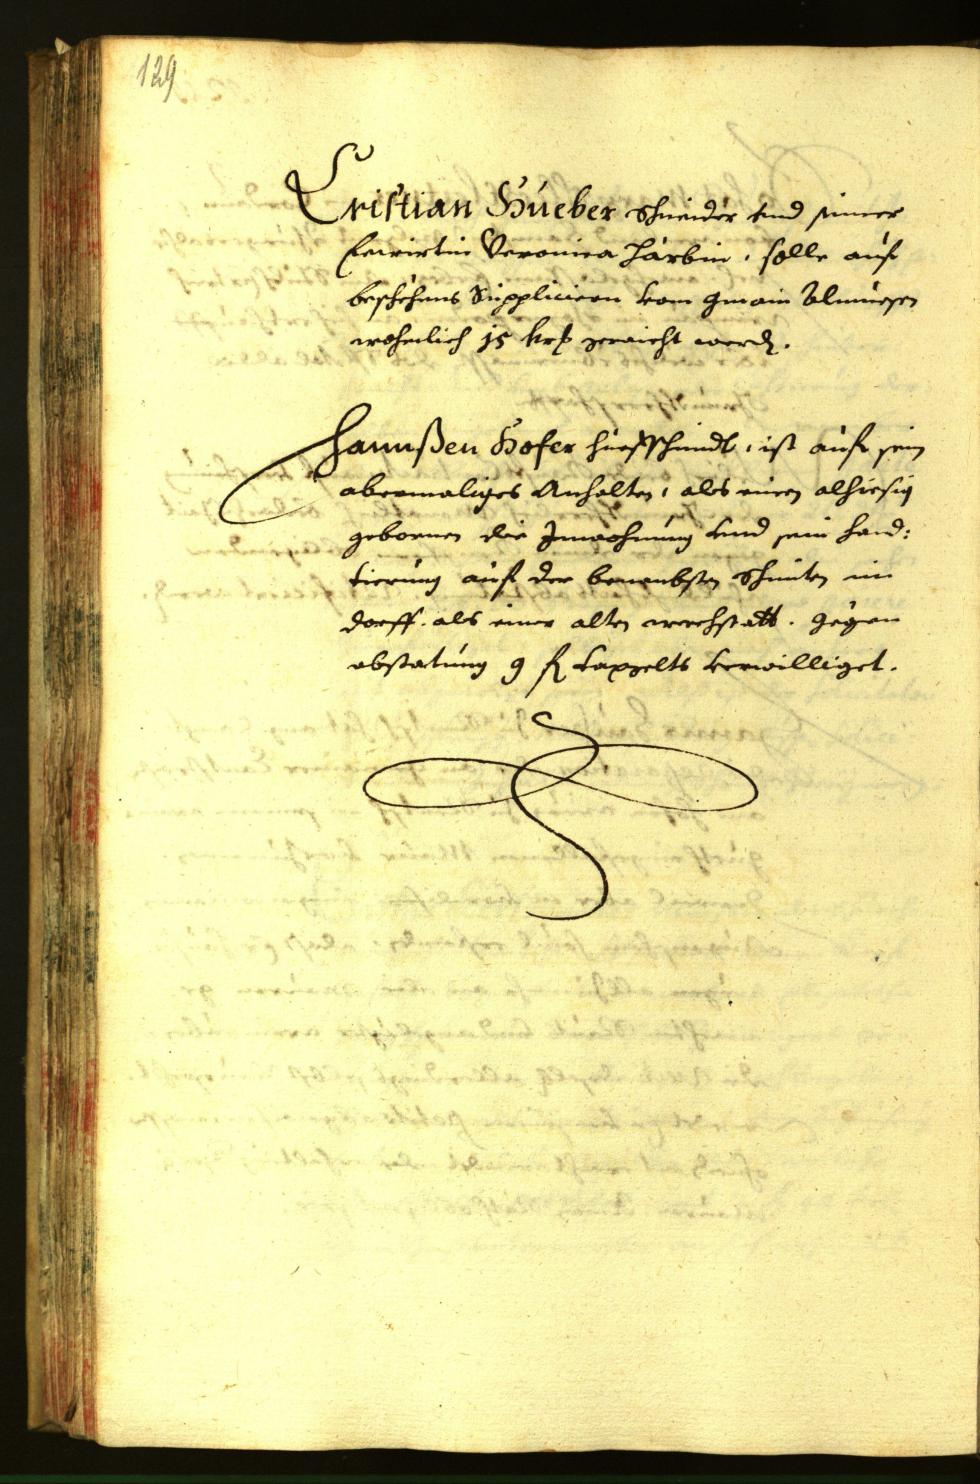 129
Cristian Hueber Schneider und seiner
Eewirtin Veronica Härbin, solle auf
beschehens Suppliciern vom gmain Almuesen
wochenlich 15 krz gereicht werdn.
Hannßen Hofer Huefschmidt, ist auf sein
abermaliges Anhalten, als einen alhiesig
gebornen die Inwohnung und sein Hand:
tierung auf der Schmiten im
Dorff. als einer alten werchstatt. gegen
abstatung 9 fl verwilliget.